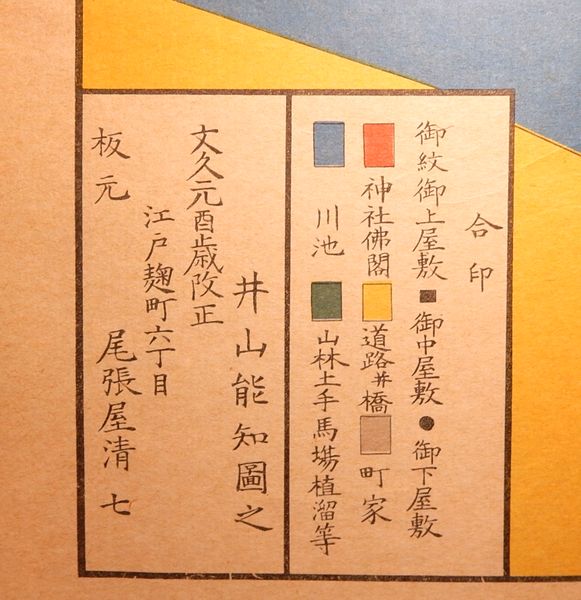 合印
御紋御上屋敷 ■ 御中屋敷 ● 御下屋敷
神社佛閣
道路井橋
町家
川池
山林土手馬場植溜等
井山能知圖之
文久元酉歳改正
江戸麹町六丁目
板元 尾張屋清七